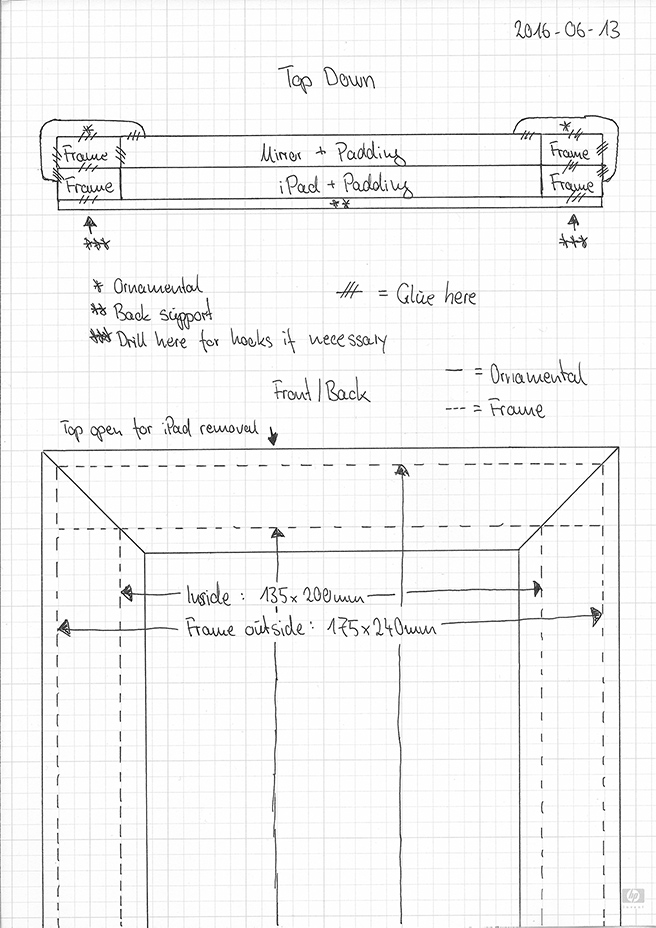 2016-06-13
Top Down
* *
Frame Mirror + Padding Frame
Frame iPad + Padding Frame
**
*** ***
* Ornamental
** Back support
*** Drill here for hooks if necessary
= Glue here
Front/Back
— = Ornamental
--- = Frame
Top open for iPad removal
Inside: 135x200mm
Frame outside: 175x240mm
hp
invent